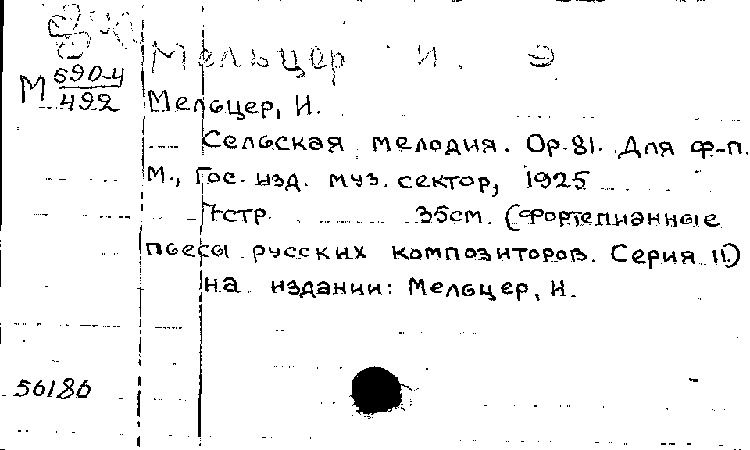 Мельцер И. Э
М 690-4
492
Мельцер, И.
Сельская мелодия. Op. 81. Для ф-п.
М., Гос. изд. муз. сектор, 1925
7стр. 35см. (Фортепианные
пьесы русских композиторов. Серия II)
На издании: Мельцер, И.
56186